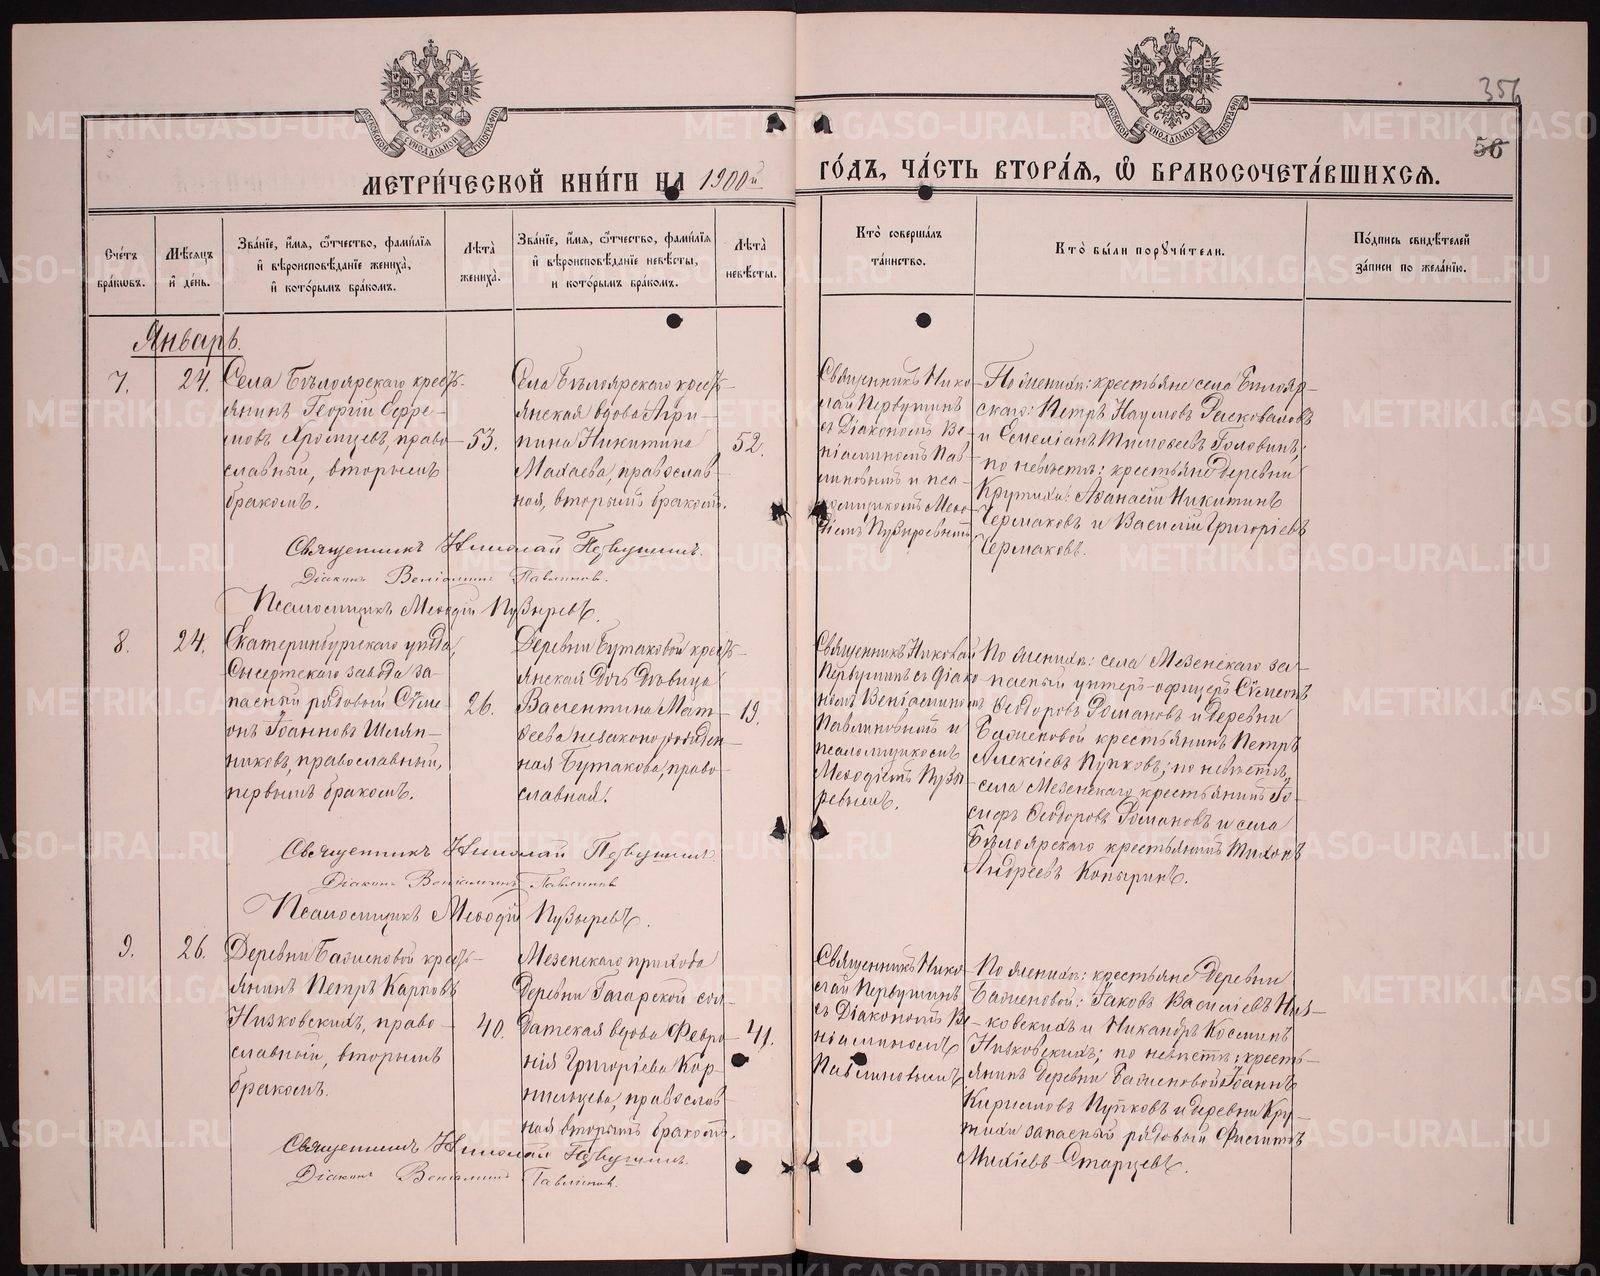 МЕТРИ́ЧЕСКОЙ КНИ́ГИ НА 1900й ГО́ДЪ, ЧА́СТЬ ВТОРА́Я, Ѡ БРАКОСОЧЕТА́ВШИХСЯ.
356
56
Сче́тъ бра́ковъ.
Мѣ́сяцъ и де́нь.
Зва́нїе, и́мя, ѻ҆́тчество, фами́лїя и вѣроисповѣ́данїе жениха̀, и кото́рымъ бра́комъ.
Лѣ́та жениха̀.
Зва́нїе, и́мя, ѻ҆́тчество, фами́лїя и вѣроисповѣ́данїе невѣ́сты, и кото́рымъ бра́комъ.
Лѣ́та невѣ́сты.
Кто̀ соверша́лъ та́инство.
Кто̀ бы́ли порꙋчи́тели.
По́дпись свидѣ́телей за́писи по жела́нїю.
Январь.
7.
24.
Села Бѣлоярскаго кресть-
янинъ Георгій Ефре-
мовъ Хромцевъ, право-
славный, вторымъ
бракомъ.
53.
Села Бѣлоярскаго кресть-
янская вдова Агри-
пина Никитина
Махаева, православ-
ная, вторымъ бракомъ.
52.
Священникъ Нико-
лай Первушинъ
съ Діакономъ Ве-
ніаминомъ Пав-
линовымъ и пса-
ломщикомъ Меѳо-
діемъ Пузыревымъ
По женихѣ: крестьяне села Бѣлояр-
скаго: Петръ Наумовъ Расковаловъ
и Емеліанъ Тимоѳеевъ Головинъ;
по невѣстѣ: крестьяне деревни
Крутихи: Аѳанасій Никитинъ
Чермаковъ и Василій Григоріевъ
Чермаковъ.
Священникъ Николай Первушинъ.
Діаконъ Веніаминъ Павлиновъ.
Псаломщикъ Меѳодій Пузыревъ.
8.
24.
Екатеринбургскаго уѣзда,
Сысертскаго завода за-
пасный рядовой Сѵме-
онъ Іоанновъ Шляп-
никовъ, православный,
первымъ бракомъ.
26.
Деревни Бутаковой кресть-
янская дочь девица
Валентина Мат-
ѳеева незаконорожден-
ная Бутакова, право-
славная.
19.
Священникъ Николай
Первушинъ съ діако-
номъ Веніаминомъ
Павлиновымъ и
псаломщикомъ
Меѳодіемъ Пузы-
ревымъ.
По женихѣ: села Мезенскаго за-
пасный унтеръ-офицеръ Сѵмеонъ
Ѳеодоровъ Романовъ и деревни
Баженовой крестьянинъ Петръ
Алексіевъ Пупковъ; по невѣстѣ,
села Мезенскаго крестьянинъ Іо-
сифъ Ѳеодоровъ Романовъ и села
Бѣлоярскаго крестьянинъ Тихонъ
Андреевъ Копыринъ.
Священникъ Николай Первушинъ
Діаконъ Веніаминъ Павлиновъ
Псаломщикъ Меѳодій Пузыревъ.
9.
26.
Деревни Баженовой кресть-
янинъ Петръ Карповъ
Низковскихъ, право-
славный, вторымъ
бракомъ.
40.
Мезенскаго прихода
деревни Гагарской сол-
датская вдова Февро-
нія Григоріева Кор-
мильцева, православ-
ная вторымъ бракомъ.
41.
Священникъ Нико-
лай Первушинъ
съ Діакономъ Ве-
ніаминомъ
Павлиновымъ.
По женихѣ: крестьяне деревни
Баженовой: Іаковъ Василіевъ Низ-
ковскихъ и Никандръ Косминъ
Низковскихъ; по невѣстѣ: кресть-
янинъ деревни Баженовой Іоаннъ
Кирилловъ Пупковъ и деревни Кру-
тихи запасный рядовый Филиппъ
Михіевъ Старцевъ.
Священникъ Николай Первушинъ.
Діаконъ Веніаминъ Павлиновъ.